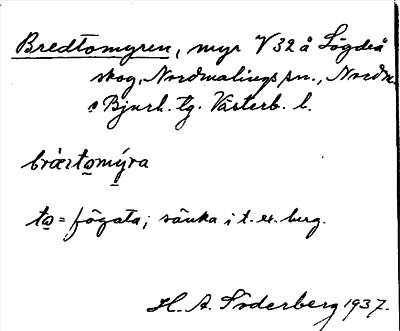 Bredtomyren, myr V 32 å Lögdeå
skog, Nordmalings sn., Nordm.
o Bjurh. tg. Västerb. l.
tomýra
to = fögata; sänka i t. ex. berg.
H. A. Söderberg 1937.